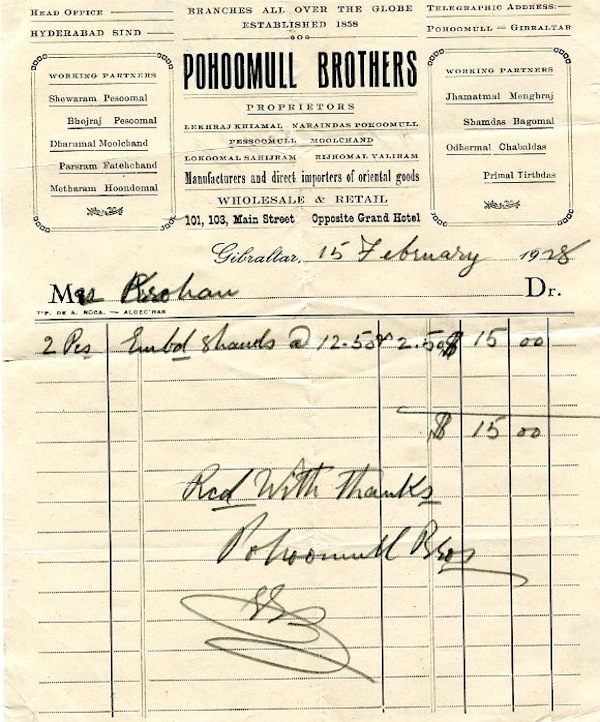 HEAD OFFICE
HYDERABAD SIND
BRANCHES ALL OVER THE GLOBE
ESTABLISHED 1858
TELEGRAPHIC ADDRESS:—
POHOOMULL = GIBRALTAR
POHOOMULL BROTHERS
PROPRIETORS
LEKHRAJ KHIAMAL NARAINDAS POHOOMULL
PESSOOMULL MOOLCHAND
LOKOOMAL SAHIJRAM RIJHOMAL VALIRAM
Manufacturers and direct importers of oriental goods
WHOLESALE & RETAIL
101, 103, Main Street Opposite Grand Hotel
WORKING PARTNERS
Shewaram Pesoomal
Bhojraj Pesoomal
Dharumal Moolchand
Parsram Fatehchand
Metharam Hoondomal
WORKING PARTNERS
Jhamatmal Menghraj
Shamdas Bagomal
Odhermal Chabaldas
Primal Tirthdas
Gibraltar, 15 February 1928
Dr.
TIP. DE A. ROCA. — ALGECIRAS
2 Pcs Embd Shauls @ 12.50 2.50 $ 15 00
$ 15 00
Rcd With thanks
Pohoomull Bros